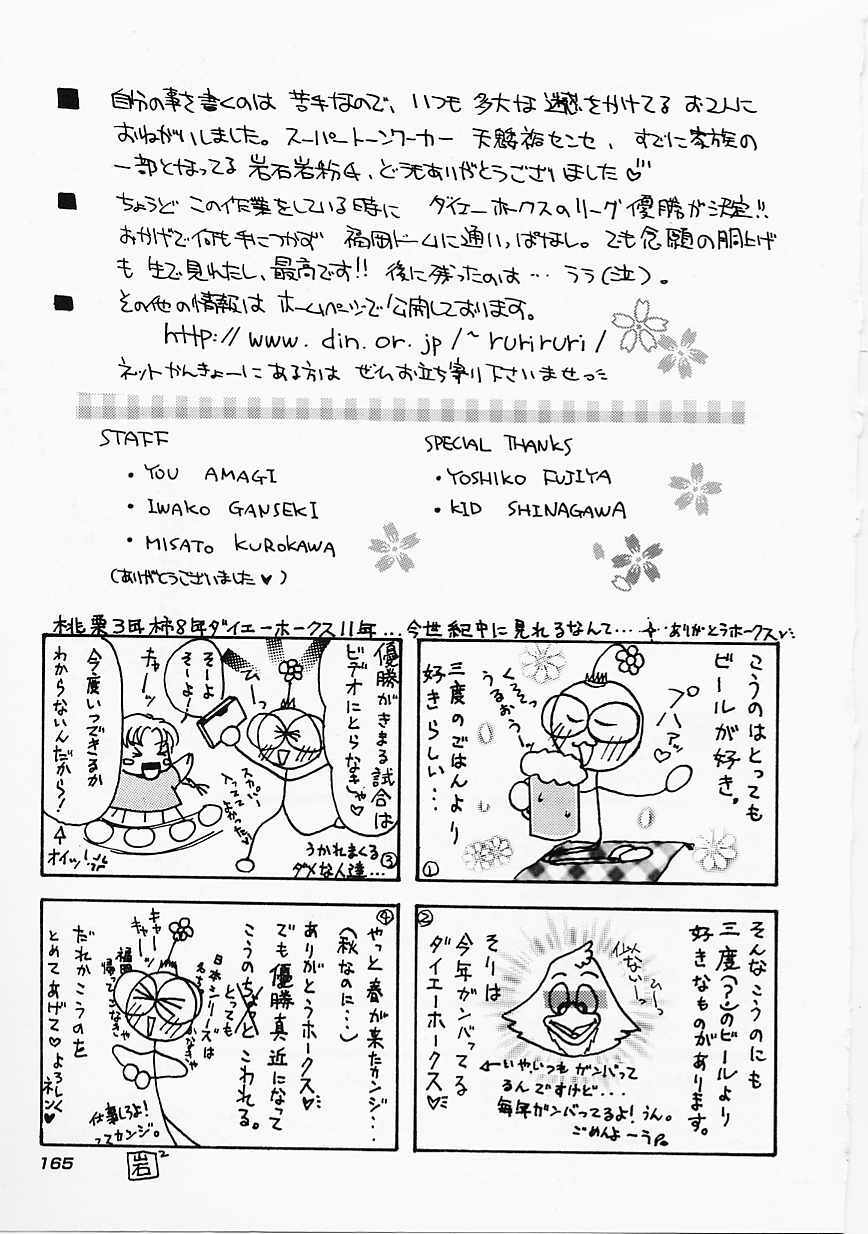 ■ 自分の事を書くのは 苦手なので、いつも 多大な 迷惑をかけてる お2人に
おねがいしました。スーパートーンワーカー 天麟裕センセ、すでに家族の
一部となってる 岩石岩粉4、どうもありがとうございました♡
■ ちょうど この作業をしている時に ダイエーホークスのリーグ優勝が決定!!
おかげで何も手につかず 福岡ドームに通いっぱなし。でも念願の胴上げ
も 生で見れたし、最高です!! 後に残ったのは… うう(泣)。
■ その他の情報は ホームページで公開しております。
http://www.din.or.jp/~ruriruri/
ネットかんきょーにある方は ぜひお立ち寄り下さいませっ
STAFF
・YOU AMAGI
・IWAKO GANSEKI
・MISATO KUROKAWA
(ありがとうございました♥)
SPECIAL THANKS
・YOSHIKO FUJIYA
・KID SHINAGAWA
桃栗3年柿8年ダイエーホークス11年…今世紀中に見れるなんて…ありがとうホークス♡
こうのはとっても
ビールが好き。
プハァッ♡
くぅそっ
うるおうーッ
三度のごはんより
好きらしい…
①
そんなこうのにも
三度(?)のビールより
好きなものがあります。
②
似てないーっ
ひーっ
そりは
今年ガンバってる
ダイエーホークス♡
←いや、いつもガンバって
るんですけど…
毎年ガンバってるよ!うん。
ごめんよーう
優勝がきまる試合は
ビデオにとらなきゃ♡
ひーっ
スカパー
入ってて
よかった♡
そーよ
そーよ!
キャーッ
今度いつできるか
わからないんだから!
オイッ!
うかれまくる
ダメな人達…
③
④
やっと春が来たカンジ…
(秋なのに…)
ありがとうホークス♡
でも優勝真近になって
こうのちょっと
とっても
こわれる。
日本シリーズは
キャー
キャーッ
福岡
帰ってこなきゃ
だれかこうのを
とめてあげて♡よろしく
ネン♥
仕事しろよ!
ってカンジ。
165
岩2